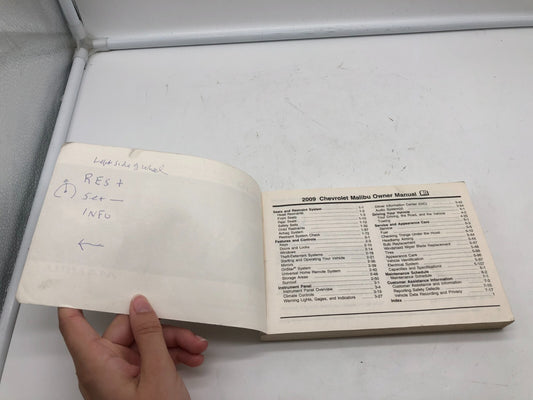 Left side of wheel
RES +
Set —
INFO
←
2009 Chevrolet Malibu Owner Manual
Seats and Restraint System 1-1
Head Restraints
Front Seats
Rear Seats
Safety Belts
Child Restraints
Airbag System
Restraint System Check
Features and Controls
Keys
Doors and Locks
Windows
Theft-Deterrent Systems
Starting and Operating Your Vehicle
Mirrors
OnStar® System
Universal Home Remote System
Storage Areas
Sunroof
Instrument Panel
Instrument Panel Overview
Climate Controls
Warning Lights, Gages, and Indicators 3-27
Driver Information Center (DIC)
Audio System(s)
Driving Your Vehicle
Your Driving, the Road, and the Vehicle
Towing
Service and Appearance Care
Service
Fuel
Checking Things Under the Hood
Headlamp Aiming
Bulb Replacement
Windshield Wiper Blade Replacement
Tires
Appearance Care
Vehicle Identification
Electrical System
Capacities and Specifications
Maintenance Schedule
Maintenance Schedule
Customer Assistance Information
Customer Assistance and Information
Reporting Safety Defects
Vehicle Data Recording and Privacy
Index